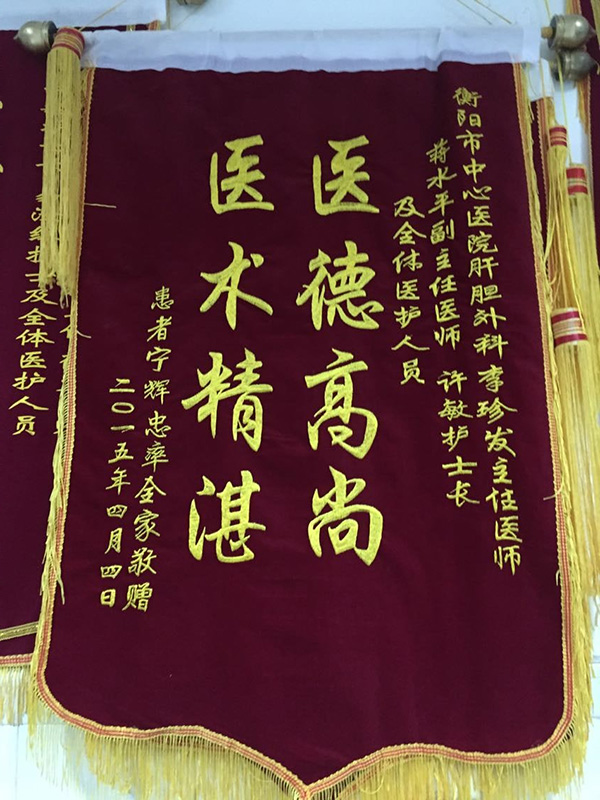 衡阳市中心医院肝胆外科李珍发主任医师
蒋水平副主任医师 许敏护士长
及全体医护人员
医德高尚
医术精湛
患者宁辉忠率全家敬赠
二〇一五年四月四日
及全体医护人员